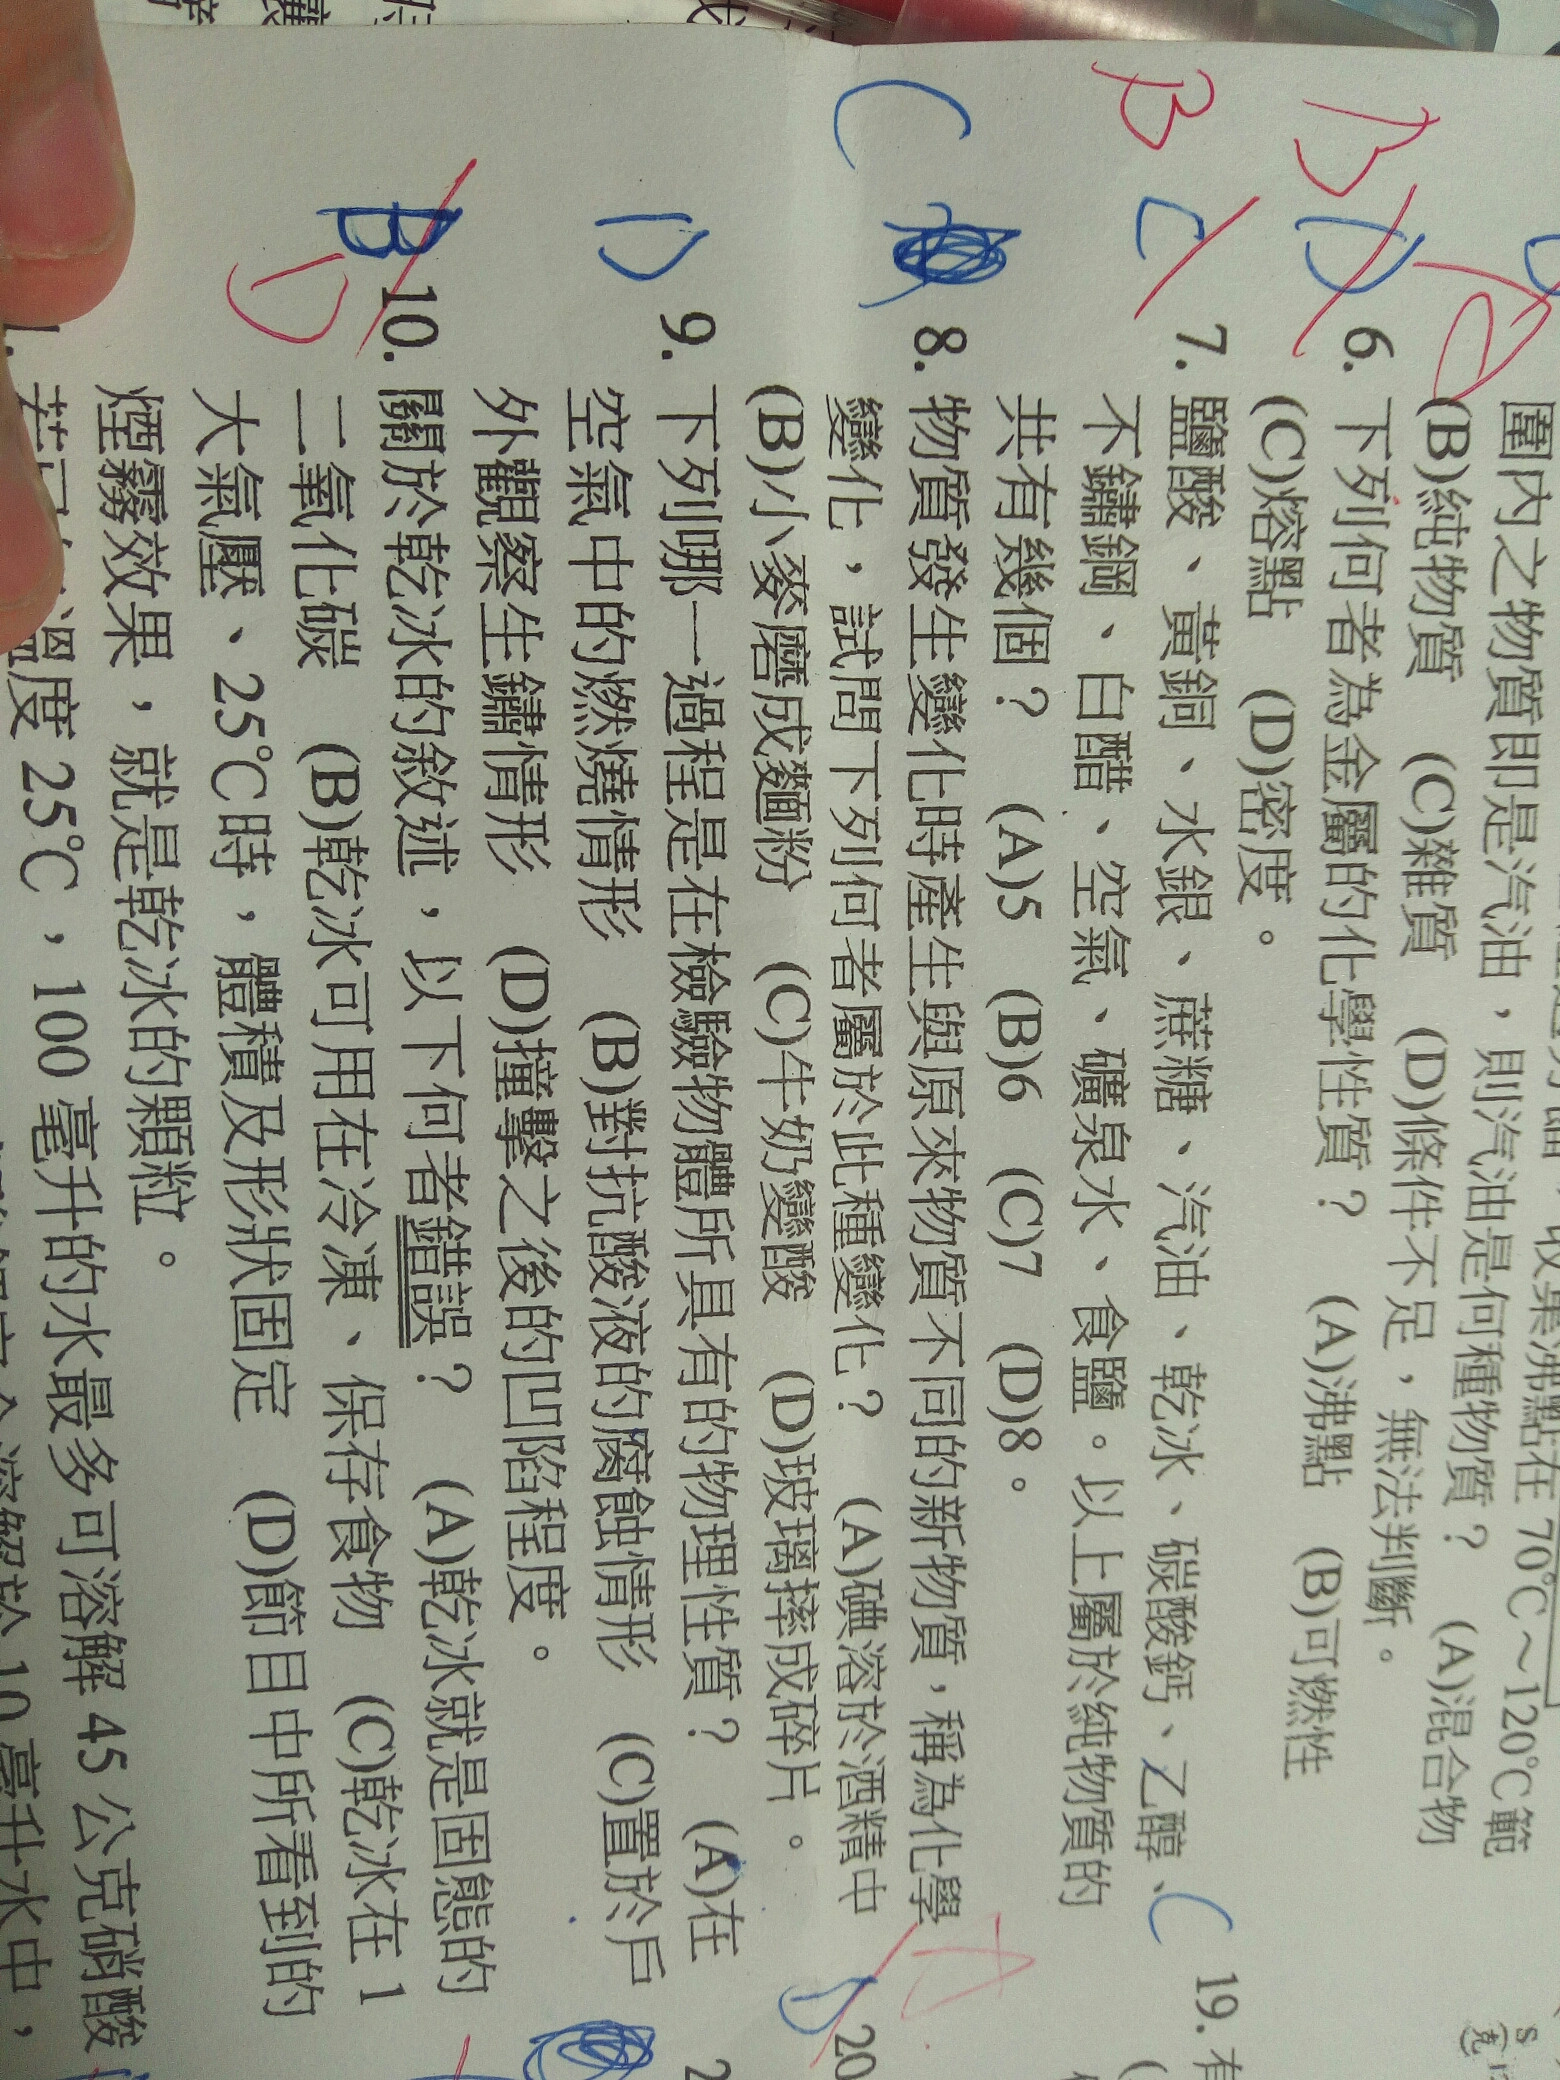 圍內之物質即是汽油，則汽油是何種物質？　(A)混合物
(B)純物質　(C)雜質　(D)條件不足，無法判斷。
6. 下列何者為金屬的化學性質？　(A)沸點　(B)可燃性
(C)熔點　(D)密度。
7. 鹽酸、黃銅、水銀、蔗糖、汽油、乾冰、碳酸鈣、乙醇、
不鏽鋼、白醋、空氣、礦泉水、食鹽。以上屬於純物質的
共有幾個？　(A)5　(B)6　(C)7　(D)8。
8. 物質發生變化時產生與原來物質不同的新物質，稱為化學
變化，試問下列何者屬於此種變化？　(A)碘溶於酒精中
(B)小麥磨成麵粉　(C)牛奶變酸　(D)玻璃摔成碎片。
9. 下列哪一過程是在檢驗物體所具有的物理性質？　(A)在
空氣中的燃燒情形　(B)對抗酸液的腐蝕情形　(C)置於戶
外觀察生鏽情形　(D)撞擊之後的凹陷程度。
10. 關於乾冰的敘述，以下何者錯誤？　(A)乾冰就是固態的
二氧化碳　(B)乾冰可用在冷凍、保存食物　(C)乾冰在 1
大氣壓、25℃時，體積及形狀固定　(D)節目中所看到的
煙霧效果，就是乾冰的顆粒。
溫度 25℃，100 毫升的水最多可溶解 45 公克硝酸
10 毫升水中，
B D
B C
C
D
B D
C
19. 有
A
D 20